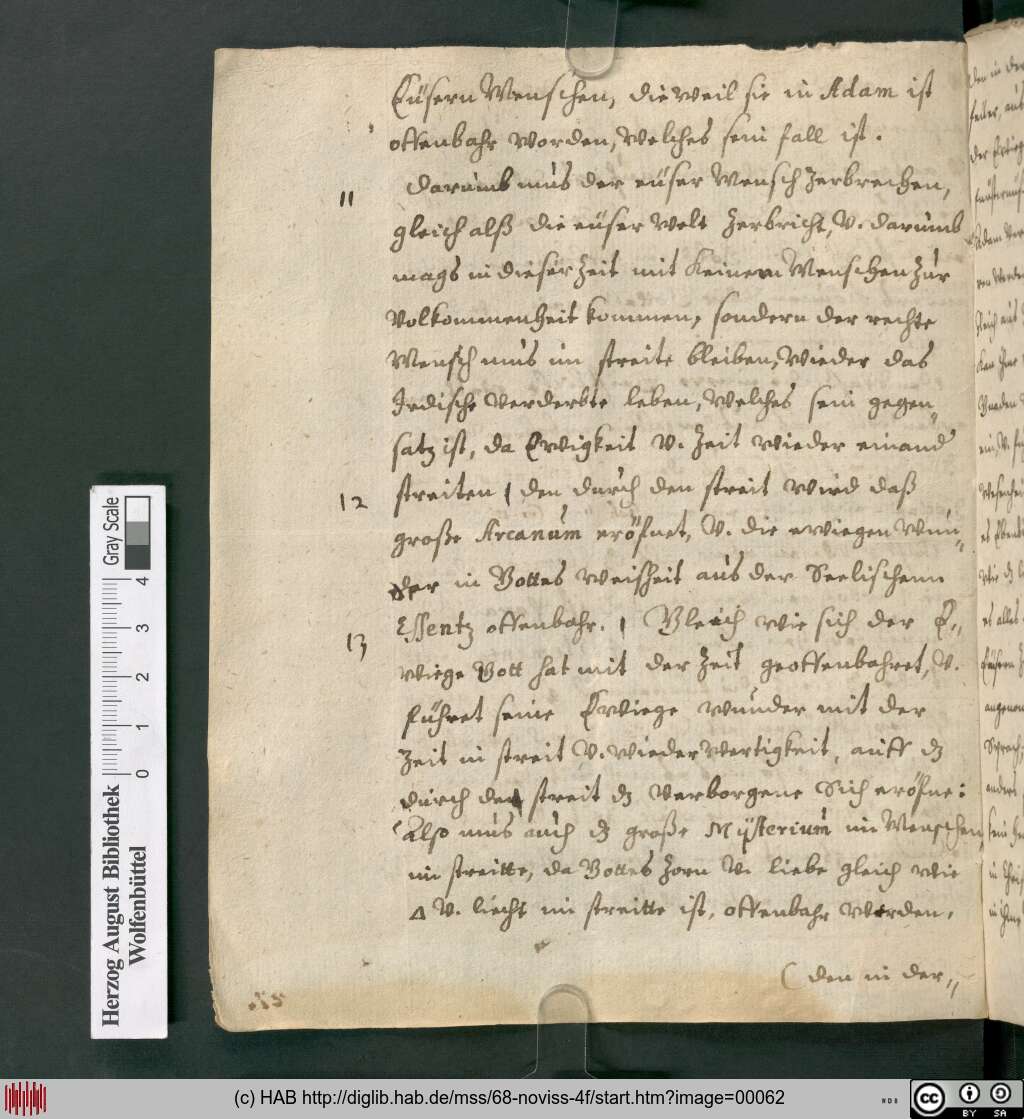 Eüsern Menschen, die weil sie in Adam ist
offenbahr worden, welches sein fall ist.
11 Darumb mus der euser Mensch Zerbrechen,
gleich alß die euser Welt Zerbricht, V. darumb
mags in dieser Zeit mit Keinem Menschen Zur
Volkommenheit kommen, sondern der rechte
Mensch mus im streite bleiben, Wieder das
Irdische Verderbte leben, Welches sein gegen„
satz ist, da Ewigkeit V. Zeit wieder einand
12 streiten / den durch den streit wird daß
große Arcanum eröfnet, V. die ewiegen Wun„
der in Gottes weisheit aus der Seelischenn
13 Essentz offenbahr. / Gleich wie sich der E„
wiege Gott hat mit der Zeit geoffenbahret, V.
führet seine Ewiege wunder mit der
Zeit in streit V. wiederwertigkeit, auff dz
durch den streit dz Verborgene Sich eröfne:
Also mus auch dz große Mysterium im Menschen
im streitte, da Gottes Zorn V. liebe gleich wie
△ V. liecht im streitte ist, offenbahr werden,
( den in der„
Gray Scale
4
3
2
1
0
Herzog August Bibliothek
Wolfenbüttel
(c) HAB http://diglib.hab.de/mss/68-noviss-4f/start.htm?image=00062
WDB
cc BY SA